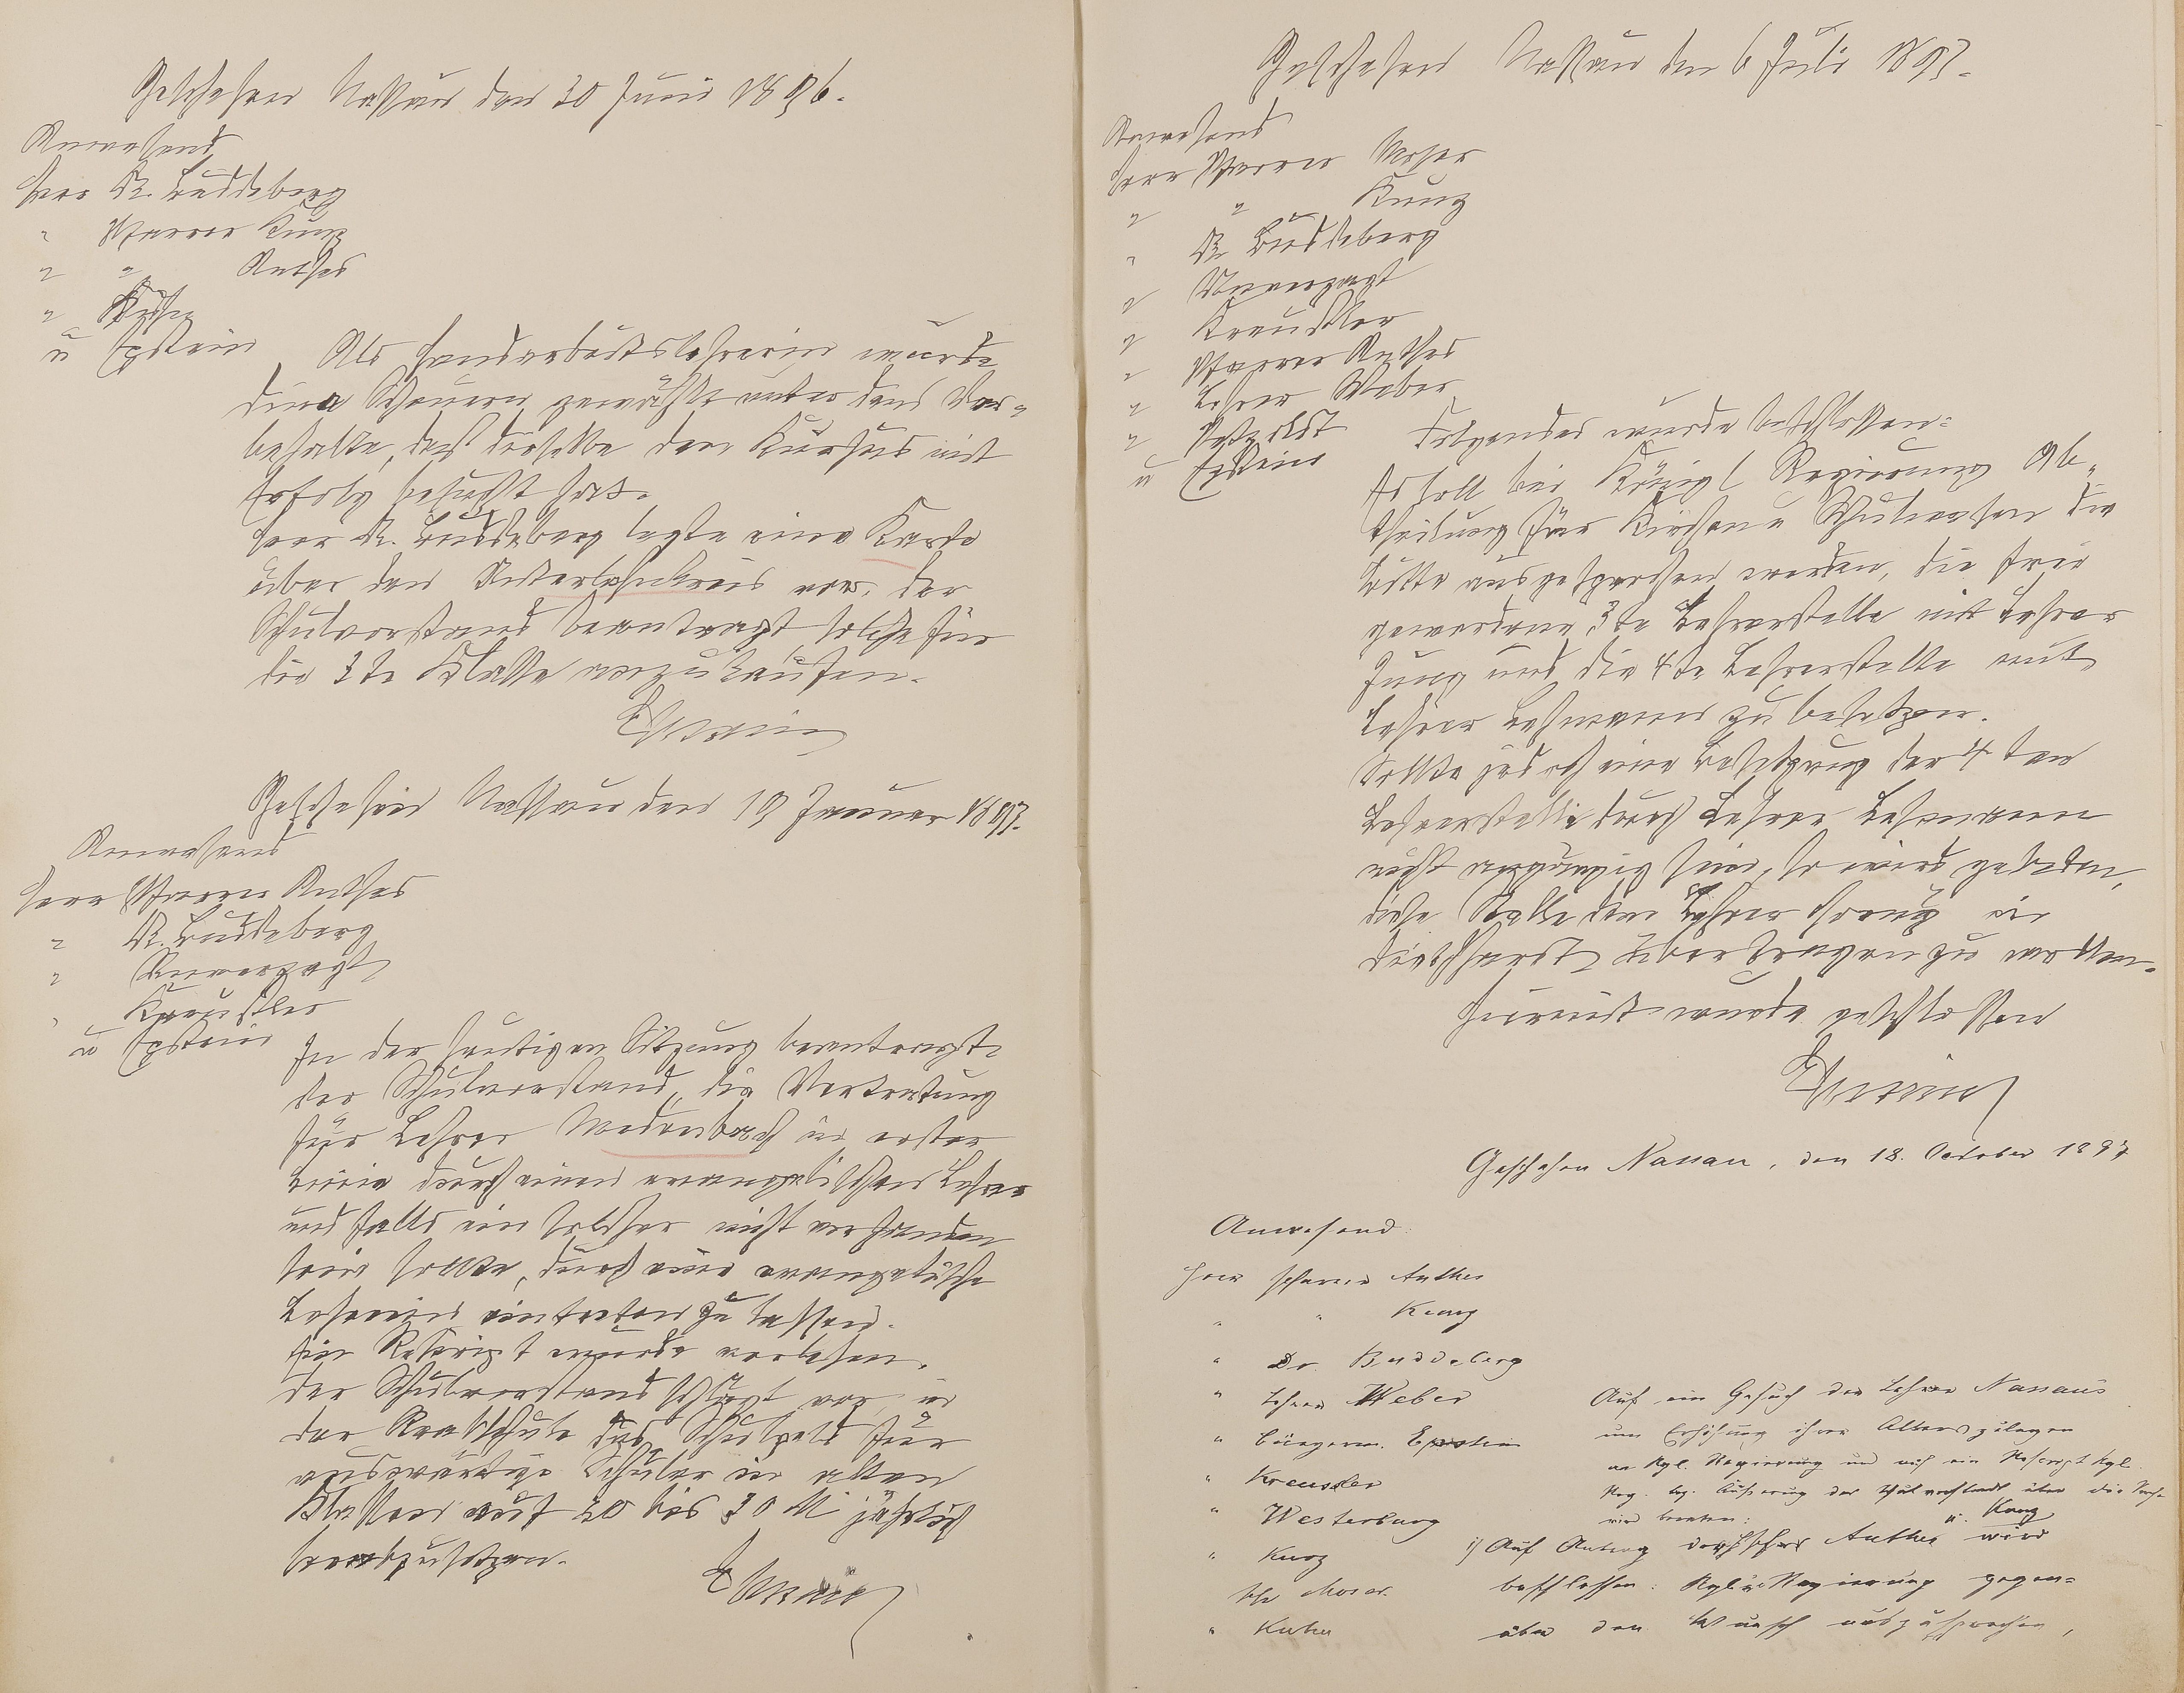 Geschehen Nassau den 30 Juni 1896.
Anwesend
Herr Dr. Buddeberg
" Pfarrer Kunz
" " Anthes
"
u Epstein
Als Handarbeitslehrerin wurde
Dina Scheuern gewählt unter dem Vor=
behalte, daß dieselbe den Kursus mit
Erfolg besucht hat.
Herr Dr. Buddeberg legte eine Karte
über den Unterlahnkreis vor, der
Schulvorstand beantragt, solche für
die 3te Klasse anzukaufen.
Epstein
Geschehen Nassau den 19 Januar 1897.
Anwesend
Herr Pfarrer Anthes
" Dr. Buddeberg
" Unverzagt
" Kreussler
u Epstein
In der heutigen Sitzung beantragte
der Schulvorstand, die Vertretung
für Lehrer Medenbach in erster
Linie durch einen evangelischen Lehrer
und falls ein solcher nicht vorhanden
sein sollte, durch eine evangelische
Lehrerin eintreten zu lassen.
Ein Reskript wurde verlesen.
Der Schulvorstand schlägt vor, in
der Realschule das Schulgeld für
auswärtige Schüler in allen
Klassen auf 20 bis 30 M jährlich
herabzusetzen.
Epstein
Geschehen Nassau den 6 Juli 1897.
Anwesend
Herr Pfarrer Moser
" " Kunz
" Dr Buddeberg
" Unverzagt
" Kreussler
" Pfarrer Anthes
" Lehrer Weber
"
u Epstein
Folgendes wurde beschlossen:
Es soll bei Königl Regierung Ab=
theilung für Kirchen u Schulwesen die
Bitte ausgesprochen werden, die frei
gewordene 3te Lehrerstelle mit Lehrer
Jung und die 4te Lehrerstelle mit
Lehrer Lehmann zu besetzen.
Sollte jedoch eine Besetzung der 4ten
Lehrerstelle durch Lehrer Lehmann
nicht angängig sein, so wird gebeten,
diese Stelle dem Lehrer in
übertragen zu wollen.
Hiermit wurde geschlossen
Epstein
Geschehen Nassau, den 18. October 1897
Anwesend:
Herr Pfarrer Anthes
" " Kunz
" Dr. Buddeberg
" Lehrer Weber
" Bürgerm. Epstein
" Kreussler
" Westerburg
" Kurz
Moser
" Kuhn
Auf ein Gesuch der Lehrer Nassaus
um Erhöhung ihrer Alterszulagen
an Kgl. Regierung und auf ein Rescript Kgl.
Reg. bez. Äußerung des Schulvorstands über die Sache
wird beraten:
1) Auf Antrag der Anthes u. Kunz wird
beschlossen: Kgl. Regierung gegen=
über den Wunsch auszusprechen,